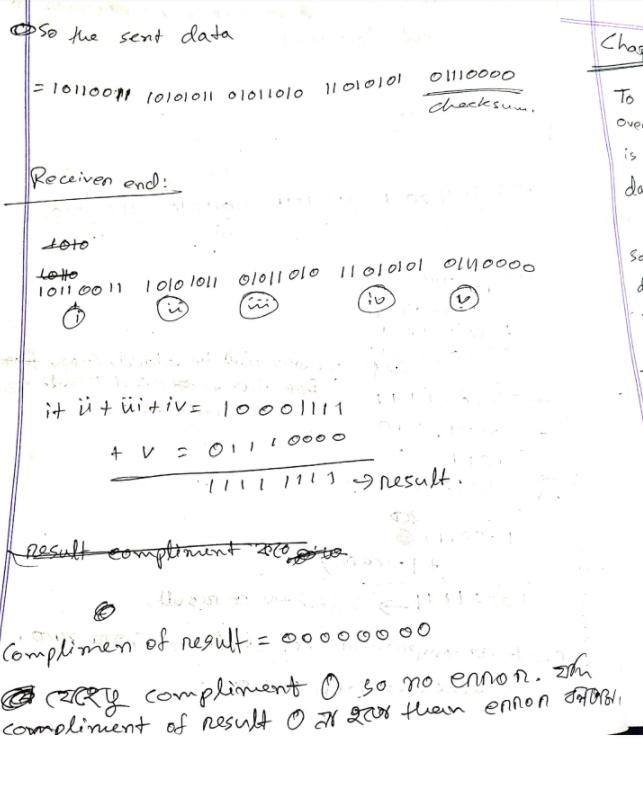 So the sent data
= 10110011 10101011 01011010 11010101 01110000
checksum.
Receiver end:
1010
10110
10110011 10101011 01011010 11010101 01110000
i ii iii iv v
i + ii + iii + iv = 10001111
+ v = 01110000
11111111 → result.
result compliment করে
Complimen of result = 00000000
যেহেতু compliment 0 so no error. যদি
compliment of result 0 না হয় then error
Chap
To
over
is
da
So